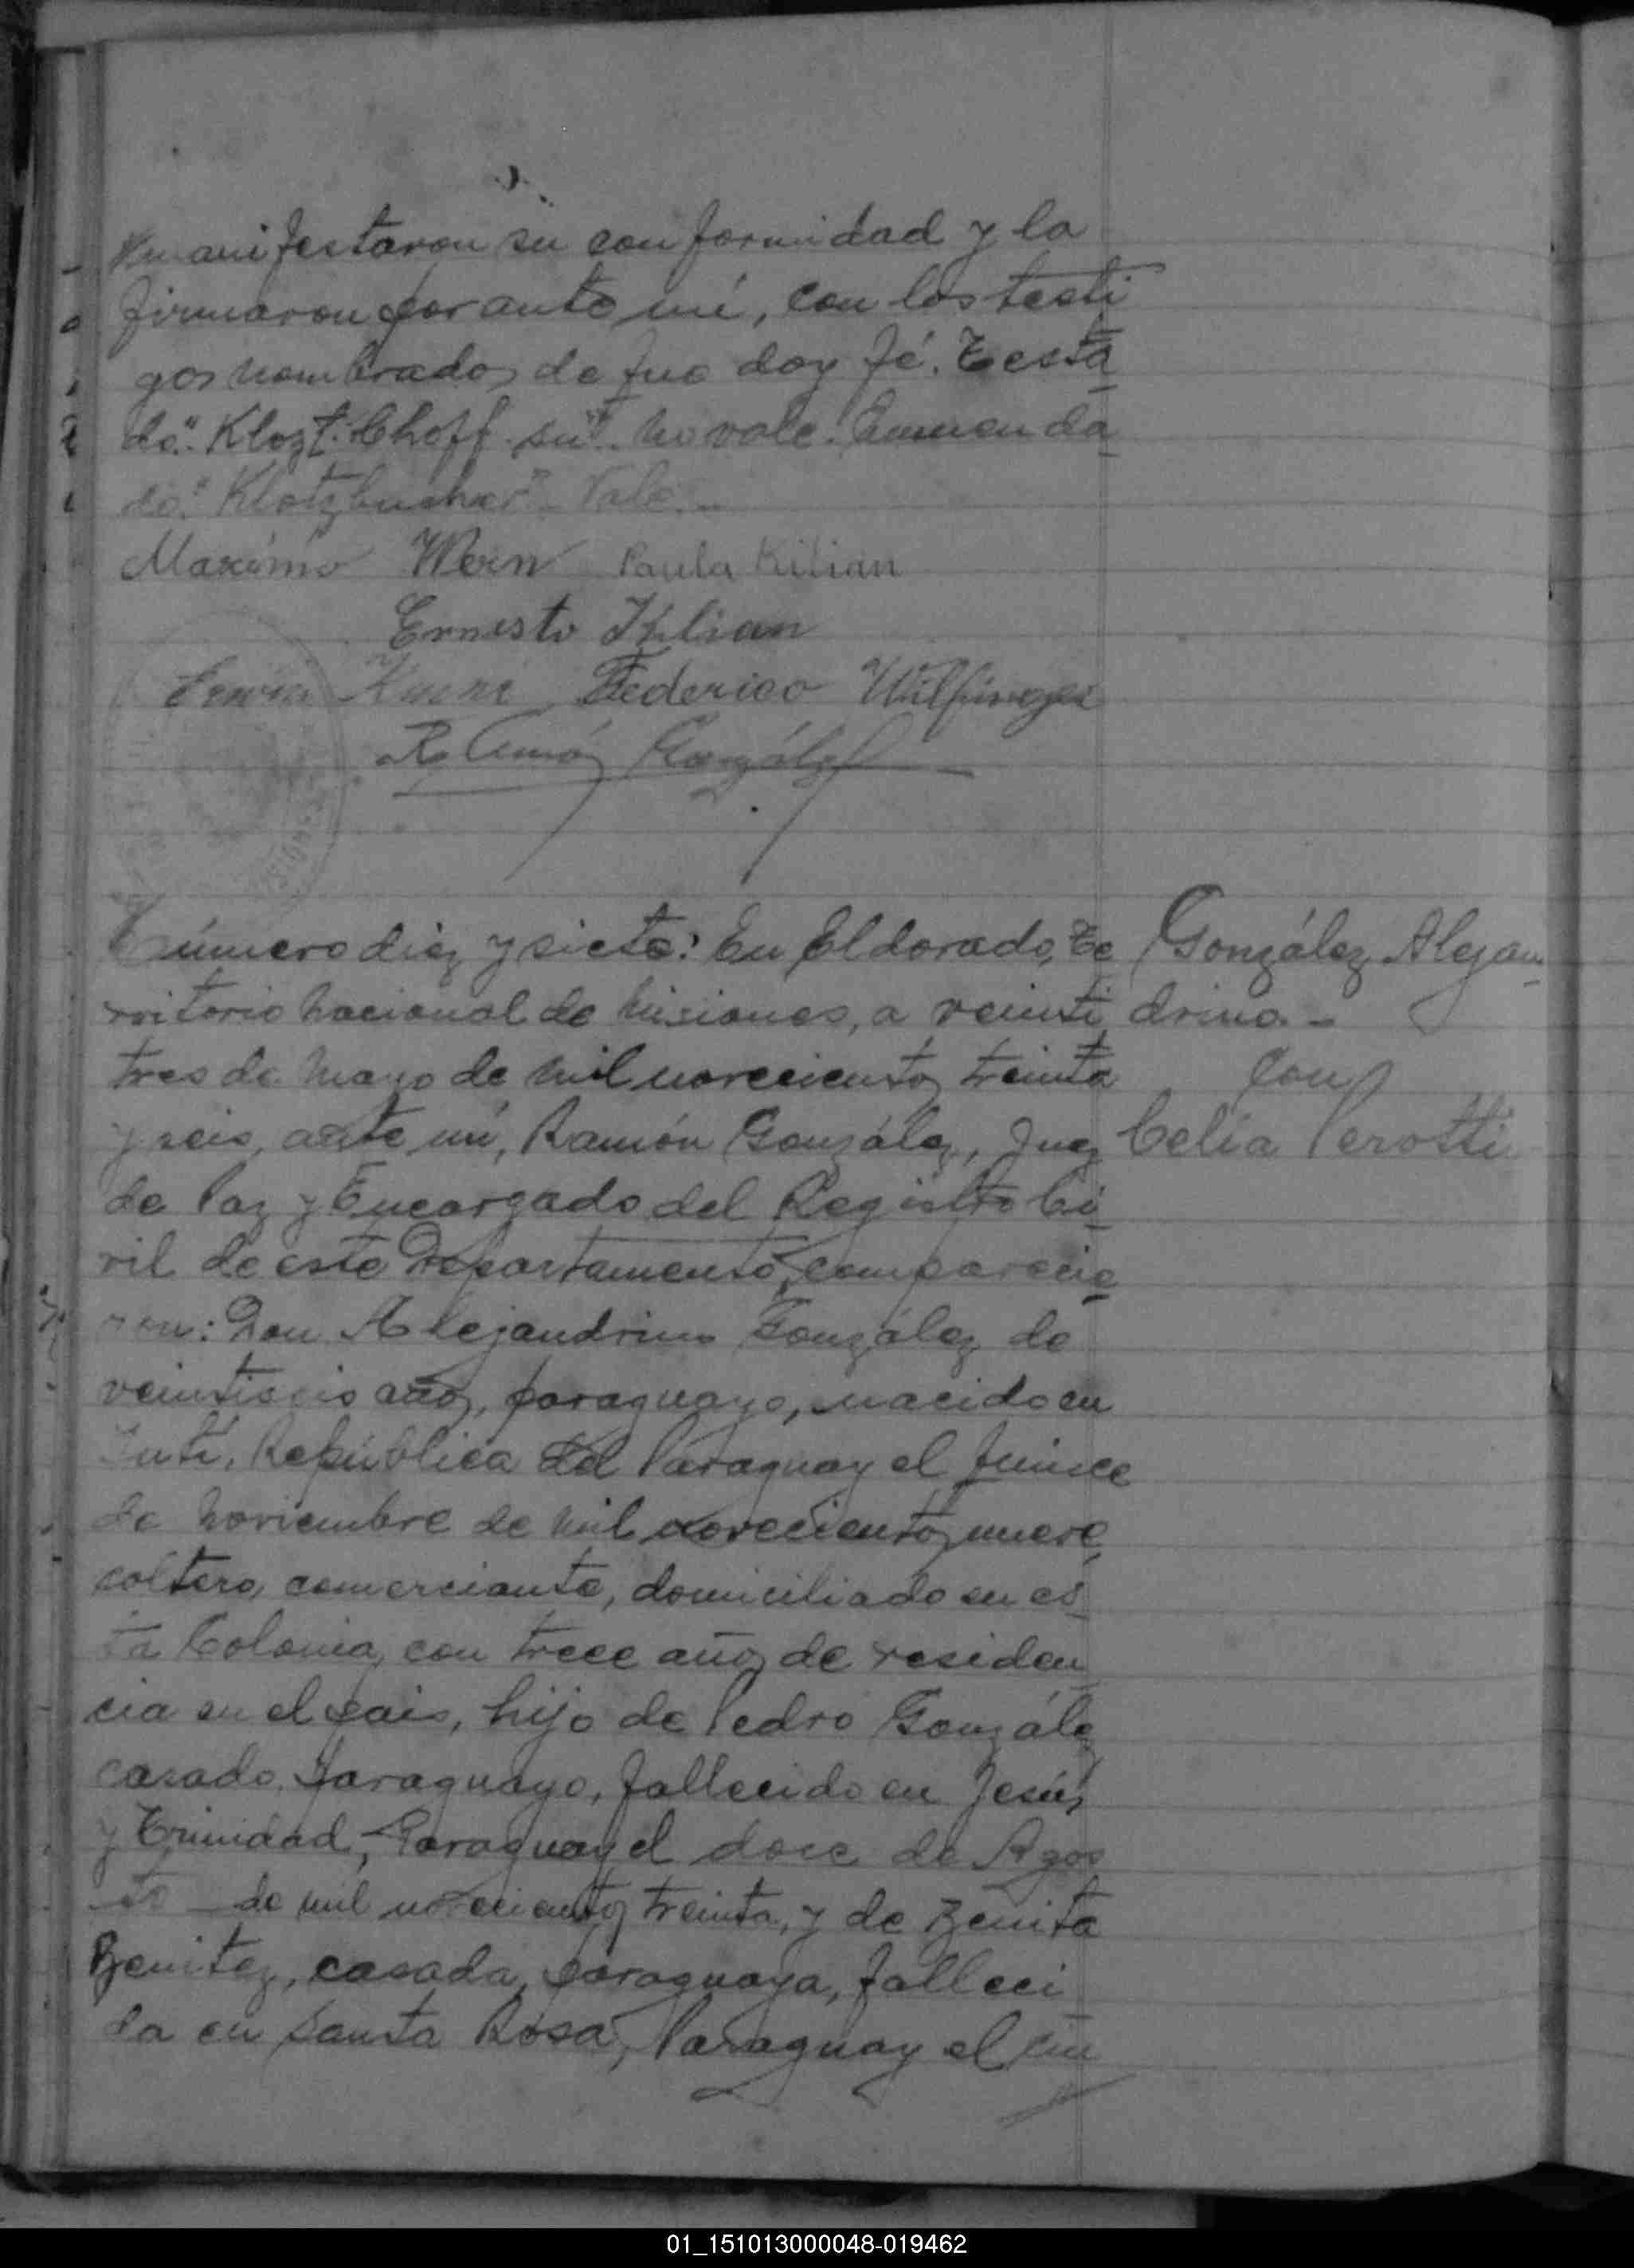 manifestaron su conformidad y la
firmaron por ante mí, con los testi
gos nombrados de que doy fé. Testa
do: "Klozt. Choff. su". no vale. Enmenda
do: "Klotzbucher" - Vale. -
Maximo Wern Paula Kilian
Ernesto Kilian
Erwin Federico Wilfinger
Ramón González
Número diez y siete: En Eldorado, Te
rritorio nacional de Misiones, a veinti
tres de mayo de mil novecientos treinta
y seis, ante mí, Ramón González, Juez
de Paz y Encargado del Registro Ci
vil de este Departamento, comparecie
ron: Don Alejandrino González de
veintiseis años, paraguayo, nacido en
Yuti, República del Paraguay el quince
de noviembre de mil novecientos nueve,
soltero, comerciante, domiciliado en es
ta Colonia, con trece años de residen
cia en el pais, hijo de Pedro González
casado, paraguayo, fallecido en Jesús
y Trinidad, Paraguay el doce de Agos
to de mil novecientos treinta, y de Benita
Benitez, casada, paraguaya, falleci
da en Santa Rosa, Paraguay el cin
González Alejan-
drino. -
con
Celia Perotti
01_151013000048-019462